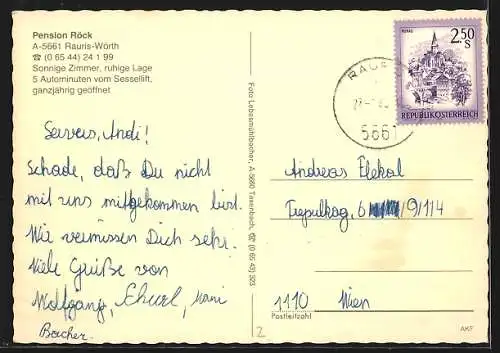 Pension Röck
A-5661 Rauris-Wörth
☎ (0 65 44) 24 1 99
Sonnige Zimmer, ruhige Lage
5 Autominuten vom Sessellift,
ganzjährig geöffnet
Servus, Andi!
Schade, daß Du nicht
mit uns mitgekommen bist.
Wir vermissen Dich sehr.
Viele Grüße von
Wolfgang,
Bacher.
Foto Lebesmühlbacher, A-5660 Taxenbach, ☎ (0 65 43) 323
2
2.50
S
REPUBLIK ÖSTERREICH
5661
Andreas
/9/14
1110 Wien
Postleitzahl
AKF